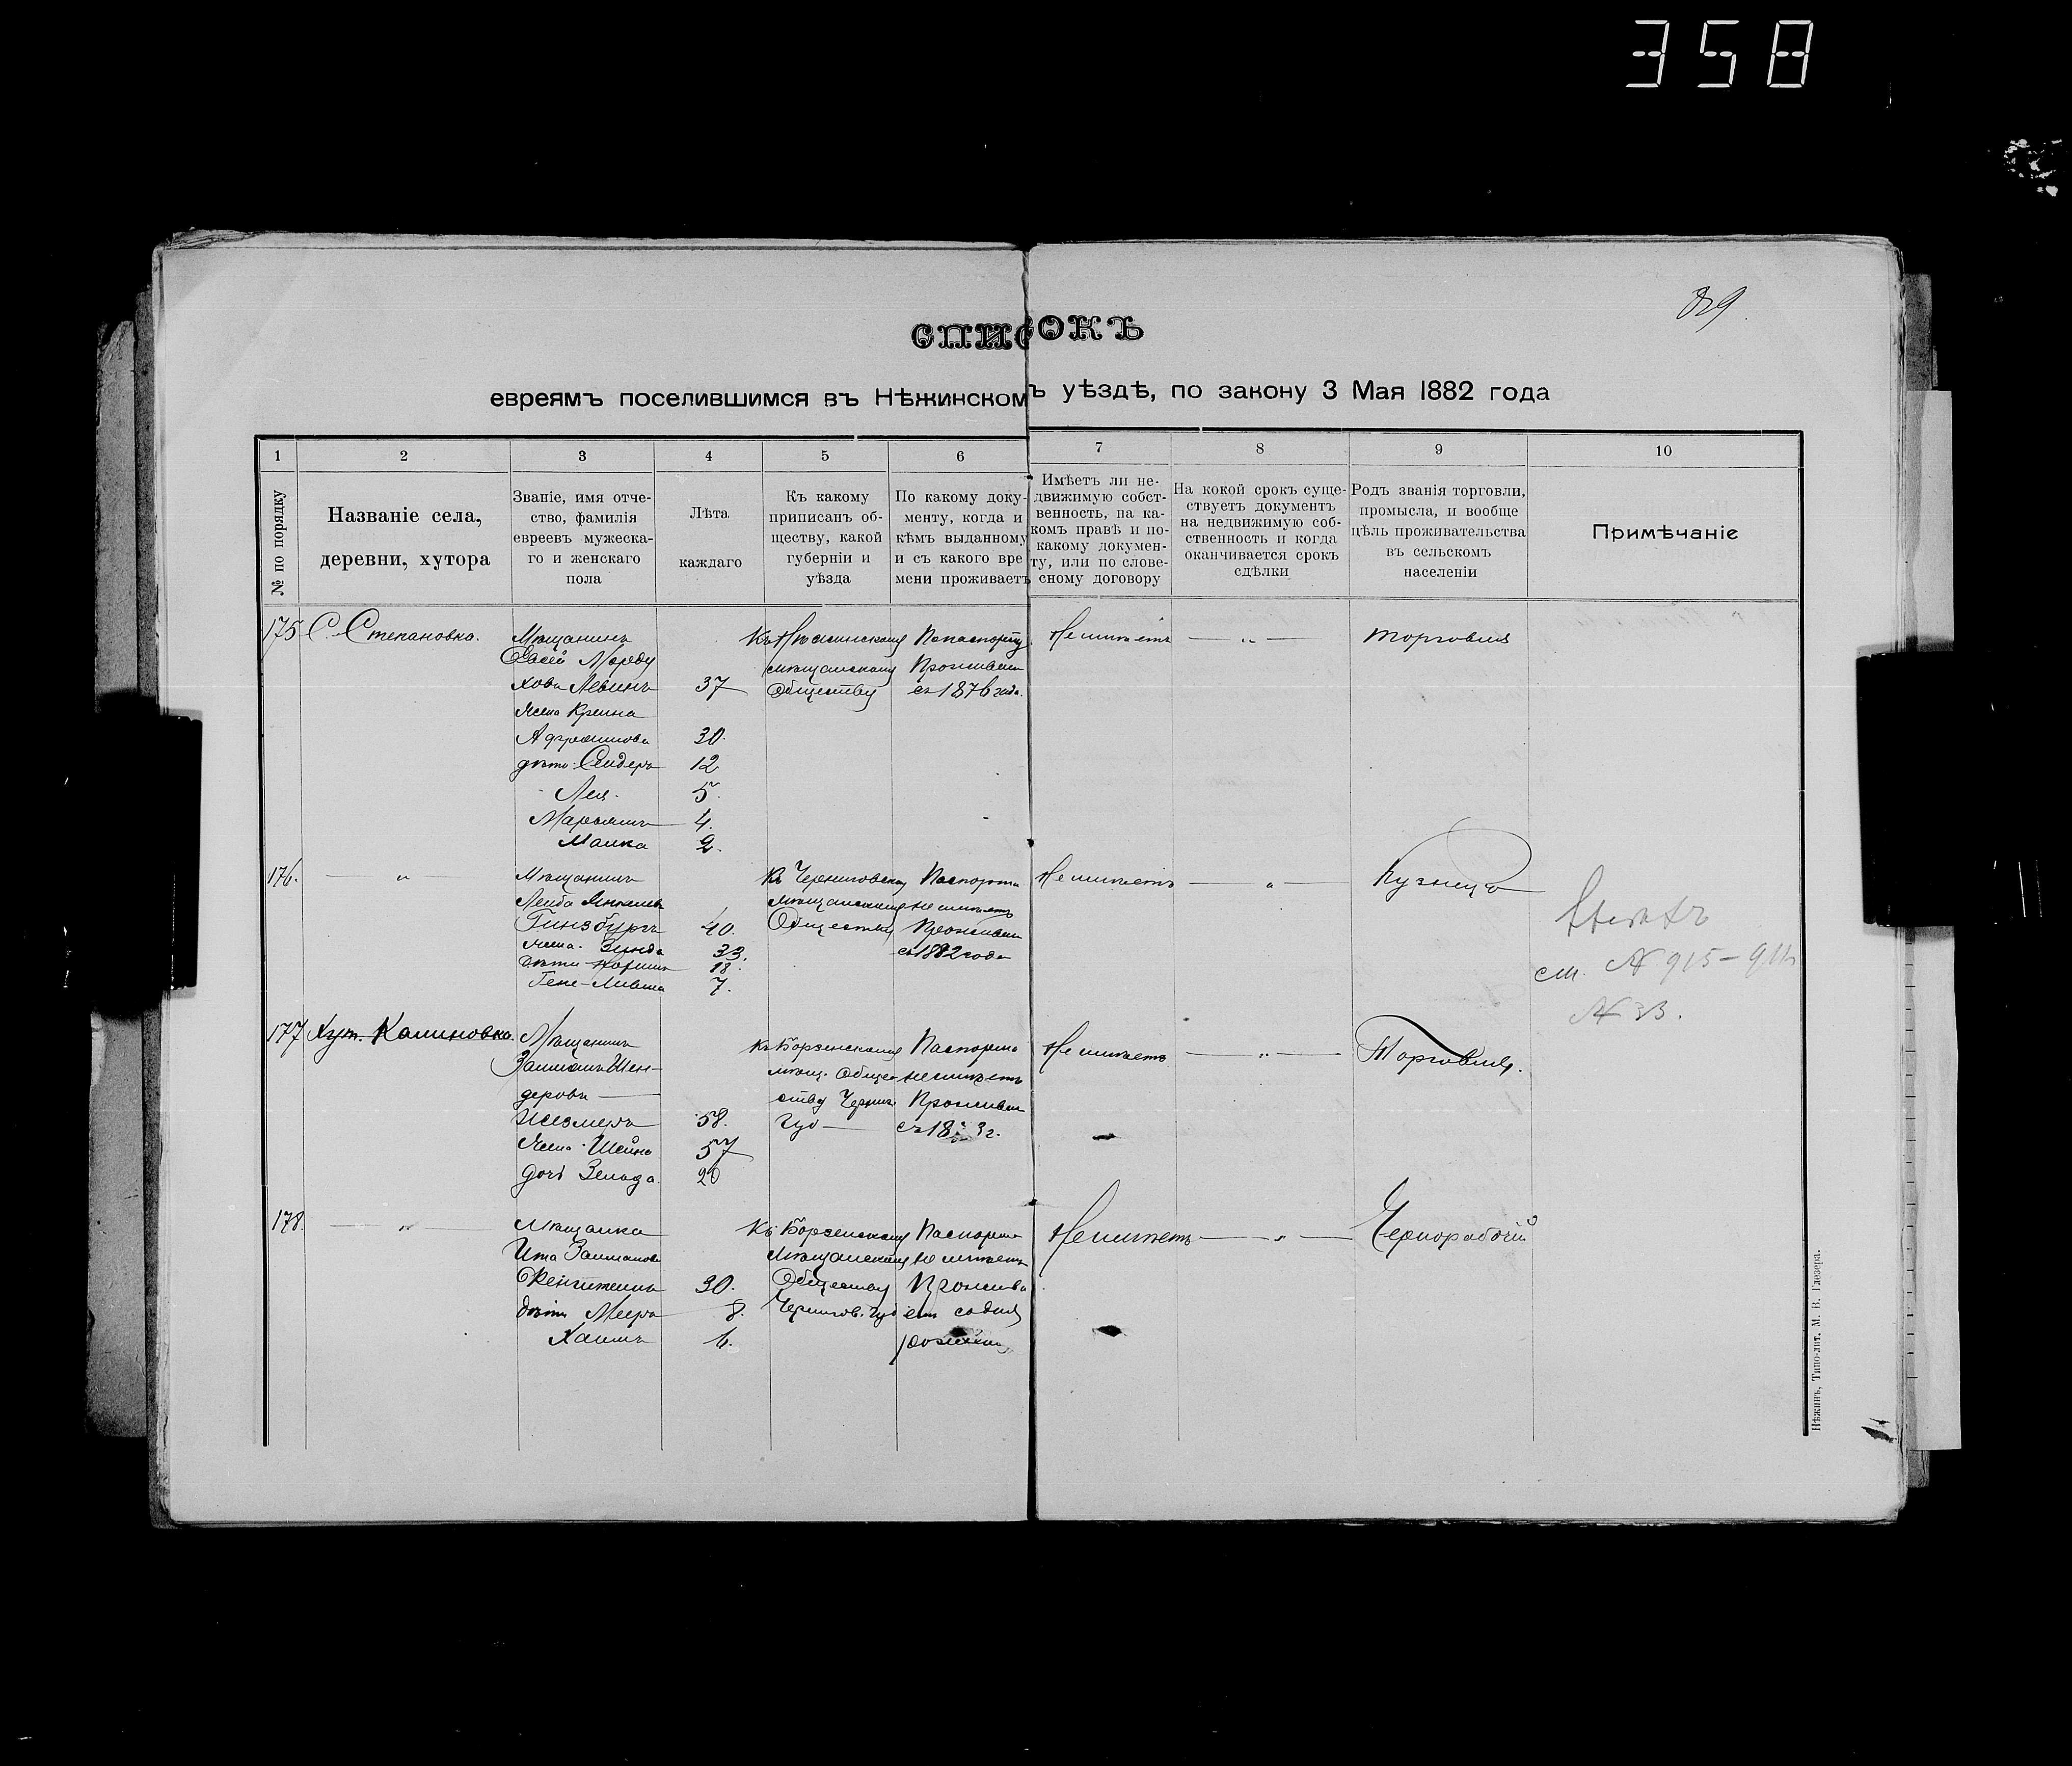 358
89.
СПИСОКЪ
евреямъ поселившимся въ Нѣжинскомъ уѣздѣ, по закону 3 Мая 1882 года
1
2
3
4
5
6
7
8
9
10
№ по порядку
Названіе села,
деревни, хутора
Званіе, имя отче-
ство, фамилія
евреевъ мужеска-
го и женскаго
пола
Лѣта
каждаго
Къ какому
приписанъ об-
ществу, какой
губерніи и
уѣзда
По какому доку-
менту, когда и
кѣмъ выданному
и съ какого вре
мени проживаетъ
Имѣетъ ли не-
движимую собст-
венность, на ка-
комъ правѣ и по-
какому докумен-
ту, или по слове-
сному договору
На кокой срокъ суще-
ствуетъ документъ
на недвижимую соб-
ственность и когда
оканчивается срокъ
сдѣлки
Родъ званія торговли,
промысла, и вообще
цѣль проживательства
въ сельскомъ
населеніи
Примѣчаніе
175
С. Степановка.
Мѣщанинъ
Евсей Морду
ховъ Левинъ 37
жена Крейна
30.
дѣти: Сендеръ 12
Лея. 5.
4.
Малка 2.
Къ Нѣжинскому
мѣщанскому
Обществу
По паспорту
Проживаетъ
съ 1876 года.
Не имѣетъ
— „ —
торговля
176.
— „ —
Мѣщанинъ
Лейба Янкелевъ
Гинзбургъ 40.
жена. 33.
дѣти 18.
7.
Къ Черниговскому
мѣщанскому
Обществу
Паспорта
не имѣетъ
Проживаетъ
съ 1882 года
Не имѣетъ
— „ —
Кузнецъ
см. № 915-
№ 33.
177
Хут. Калиновка.
Мѣщанинъ
Залманъ Шен-
деровъ —
58.
жена Шейна 57
дочь Зельда 20
Къ Борзенскому
мѣщ. Общес
ству Черниг.
Губ —
Паспорта
не имѣетъ
Проживаетъ
Не имѣетъ
— „ —
Торговля.
178.
— „ —
Мѣщанка
Ита Залманова
30.
дѣти Мееръ 8.
Хаимъ 6.
Къ Борзенскому
мѣщанскому
Обществу
Чернигов. Губ
Паспорта
не имѣетъ
Прожива
етъ со дня
рожденія
Не имѣетъ
— „ —
Чернорабочій
Нѣжинъ, Типо-лит. М. В. Глезера.